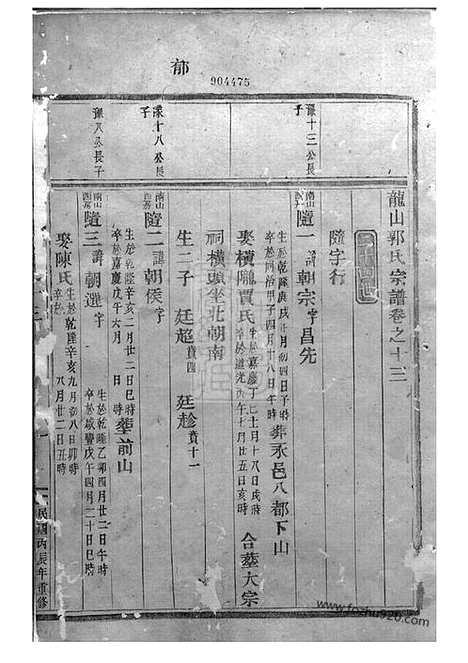 郁
904475
龍山郭氏宗譜卷之十三
隨字行
豫十三公長子
南山四房
隨一 諱朝宗 字昌先
生於乾隆庚戌十月初四日子時
卒於同治甲子四月十八日午時
葬永邑八都下山
娶橫隴賈氏
生於嘉慶丁巳十月十八日戌時
卒於道光 七月廿五日亥時
合墓大宗
祠橫頭坐北朝南
生二子 廷超賁四 廷趁賁十一
豫十八公長子
南山四房
隨二 諱朝侯 字
生於乾隆辛亥二月二日巳時
卒於嘉慶戊午六月
葬前山
豫八公長子
南山四房
隨三 諱朝選 字
生於乾隆乙卯四月廿二日午時
卒於咸豐戊午四月二十日巳時
娶陳氏
生於乾隆辛亥九月初八日卯時
卒於 八月廿二日丑時
民國丙辰年重修
www.fozhu920.com